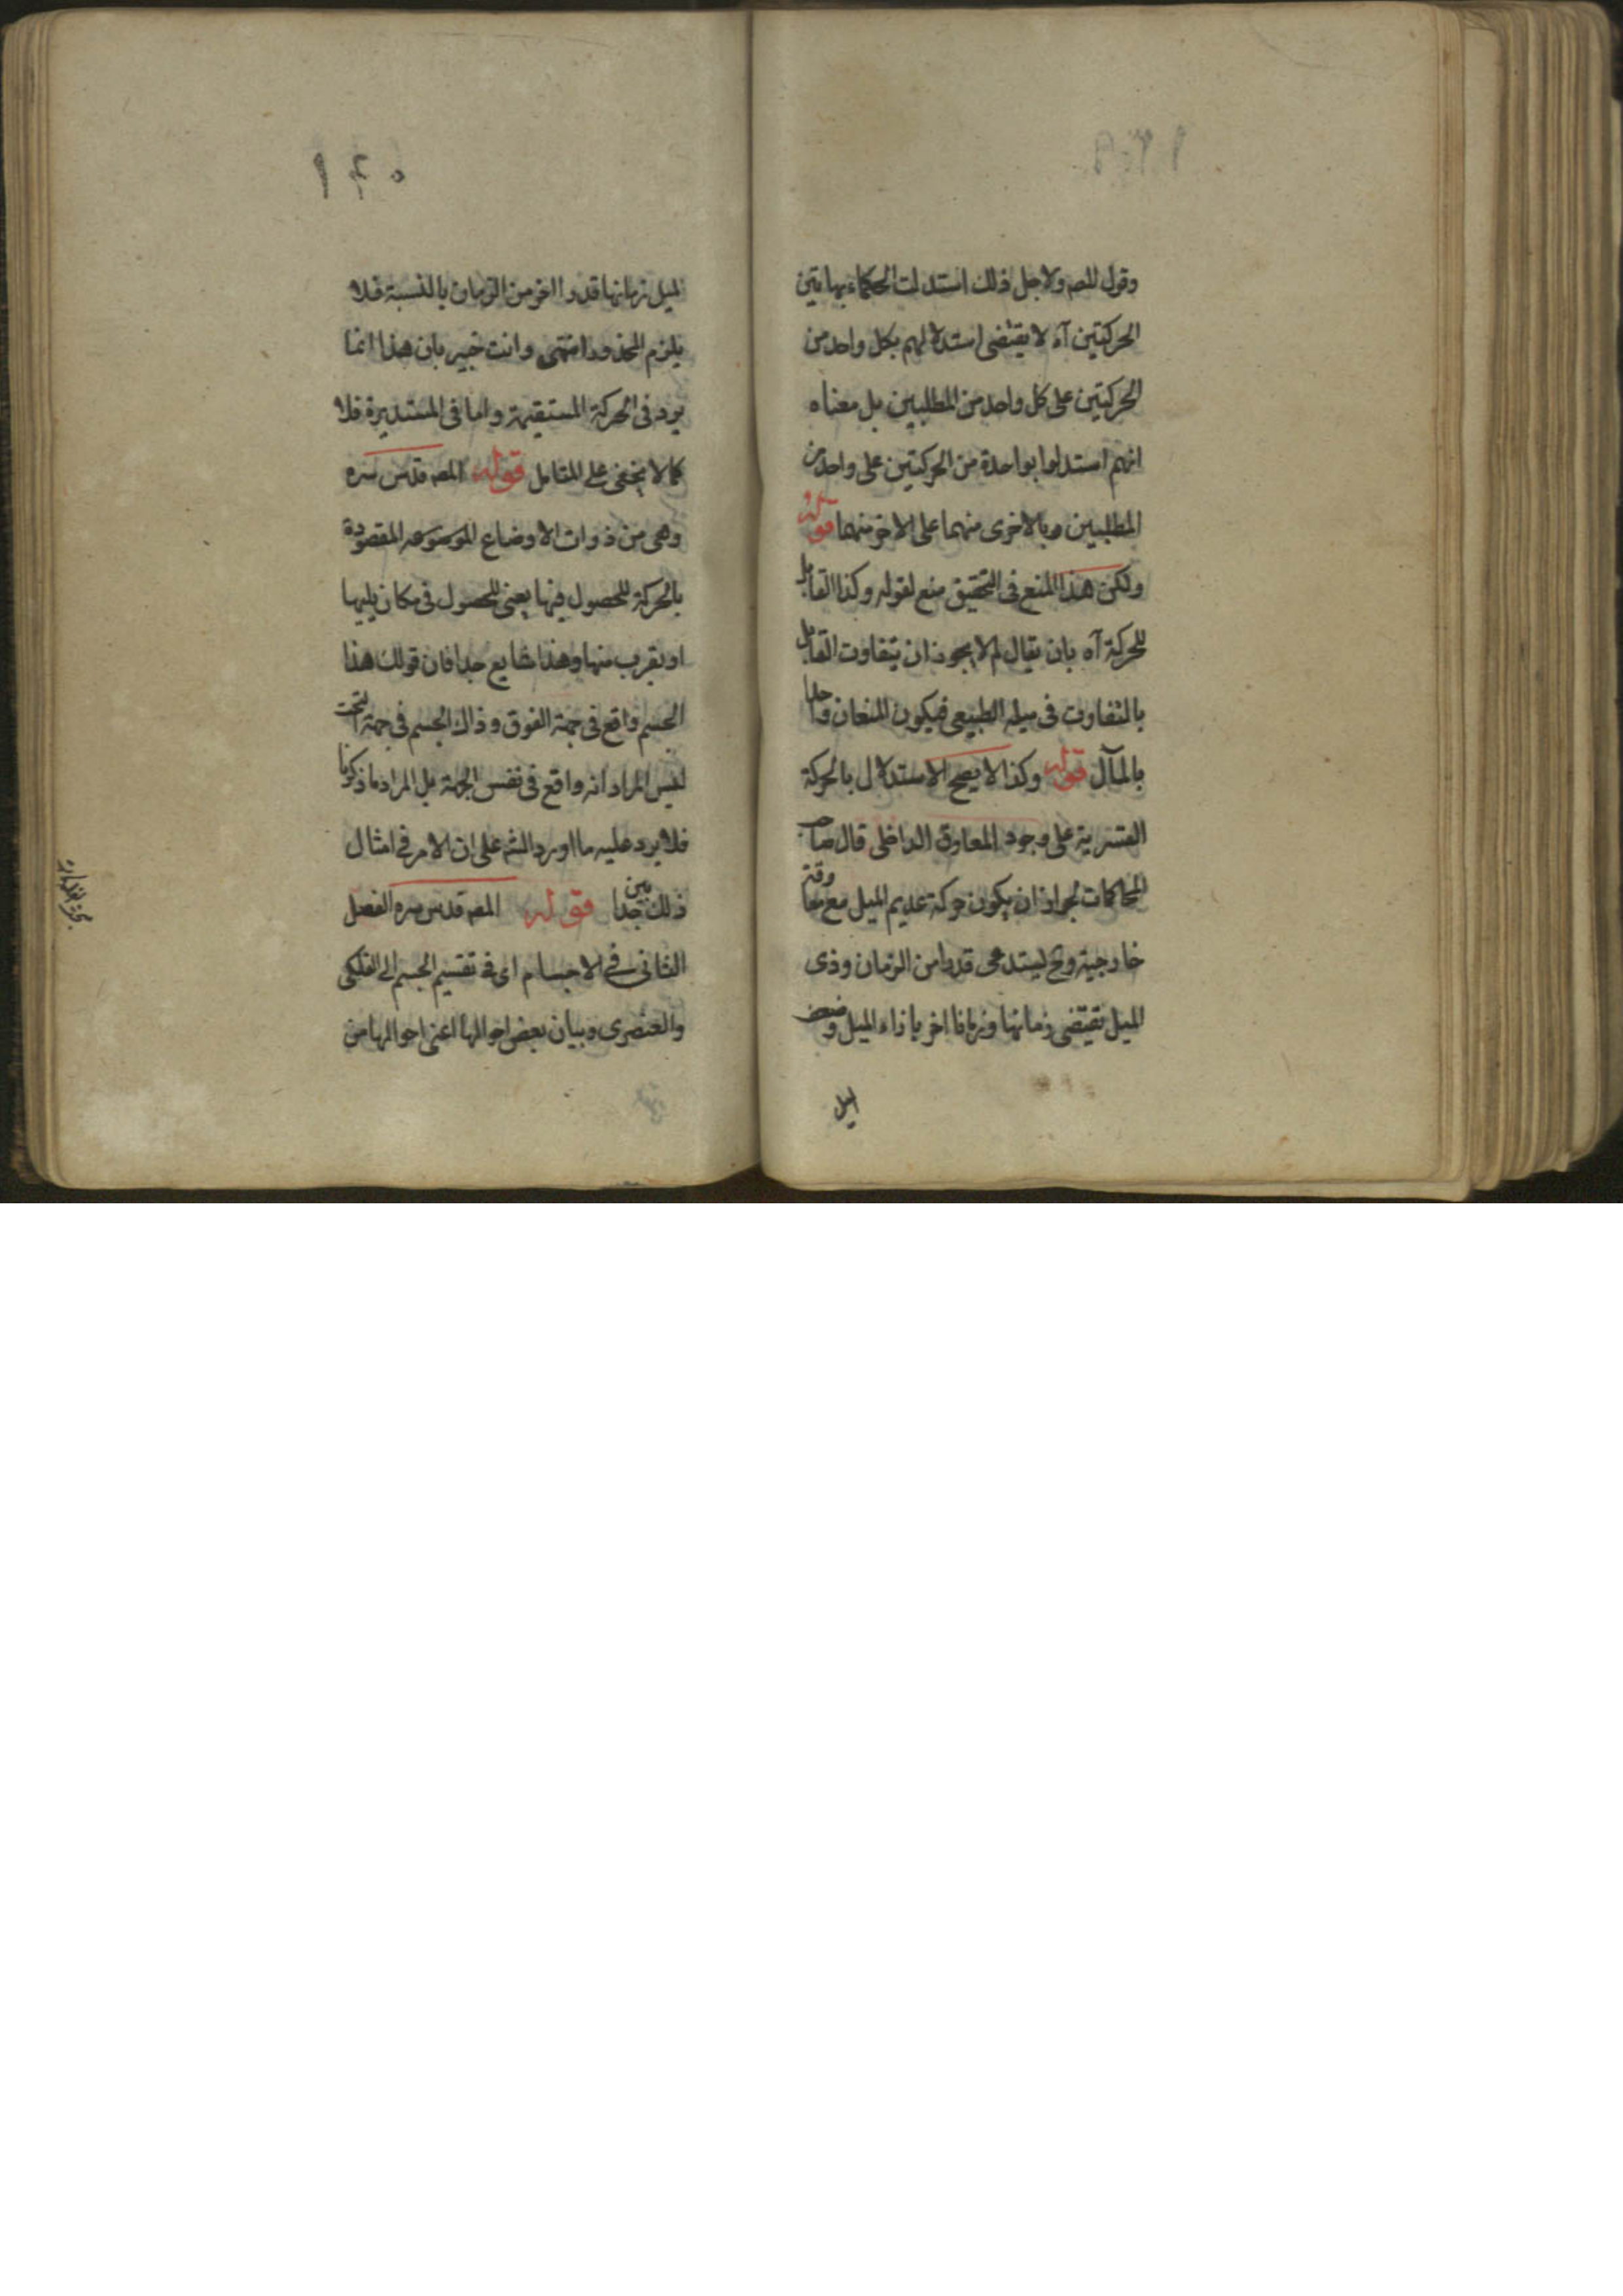 ١٣٩
وقول المصه ولاجل ذلك استدلت الحكماء بهاتين
الحركتين آه لا يقتضى استدلالهم بكل واحد من
الحركتين على كل واحد من المطلبين بل معناه
انهم استدلوا بواحدة من الحركتين على واحد من
المطلبين وبالاخرى منهما على الاخر منهما قوله
ولكن هذا المنع فى التحقيق منع لقوله وكذا القابل
للحركة آه بان يقال لم لا يجوز ان يتفاوت القابل
بالتفاوت فى ميله الطبيعى فيكون المنعان واحدا
بالمآل قوله وكذا لا يصح الاستدلال بالحركة
القسرية على وجود المعاوق الداخلى قال صاحب
المحاكمات لجواز ان يكون حركة عديم الميل مع معاوقة
خارجية وح ليستدعى قدرا من الزمان وذى
الميل تقتضى زمانها وزمانا اخر بازاء الميل وضعيف
الميل
١٤٠
الميل زمانها قدرا اخر من الزمان بالنسبة فلا
يلزم المحذور انتهى وانت خبير بان هذا انما
يرد فى الحركة المستقيمة واما فى المستديرة فلا
كما لا يخفى على المتامل قوله المصه قدس سره
وهى من ذوات الاوضاع المقصودة
بالحركة للحصول فيها يعنى للحصول فى مكان يليها
او يقرب منها وهذا شايع جدا فان قولك هذا
الجسم واقع فى جهة الفوق وذاك الجسم فى جهة التحت
ليس المراد انه واقع فى نفس الجهة بل المراد ما ذكرنا
فلا يرد عليه ما اورد الشه على ان الامر فى امثال
ذلك بين جدا قوله المصه قدس سره الفصل
الثانى فى الاجسام اى فى تقسيم الجسم الى الفلكى
والعنصرى وبيان بعض احوالها اعنى احوالها من